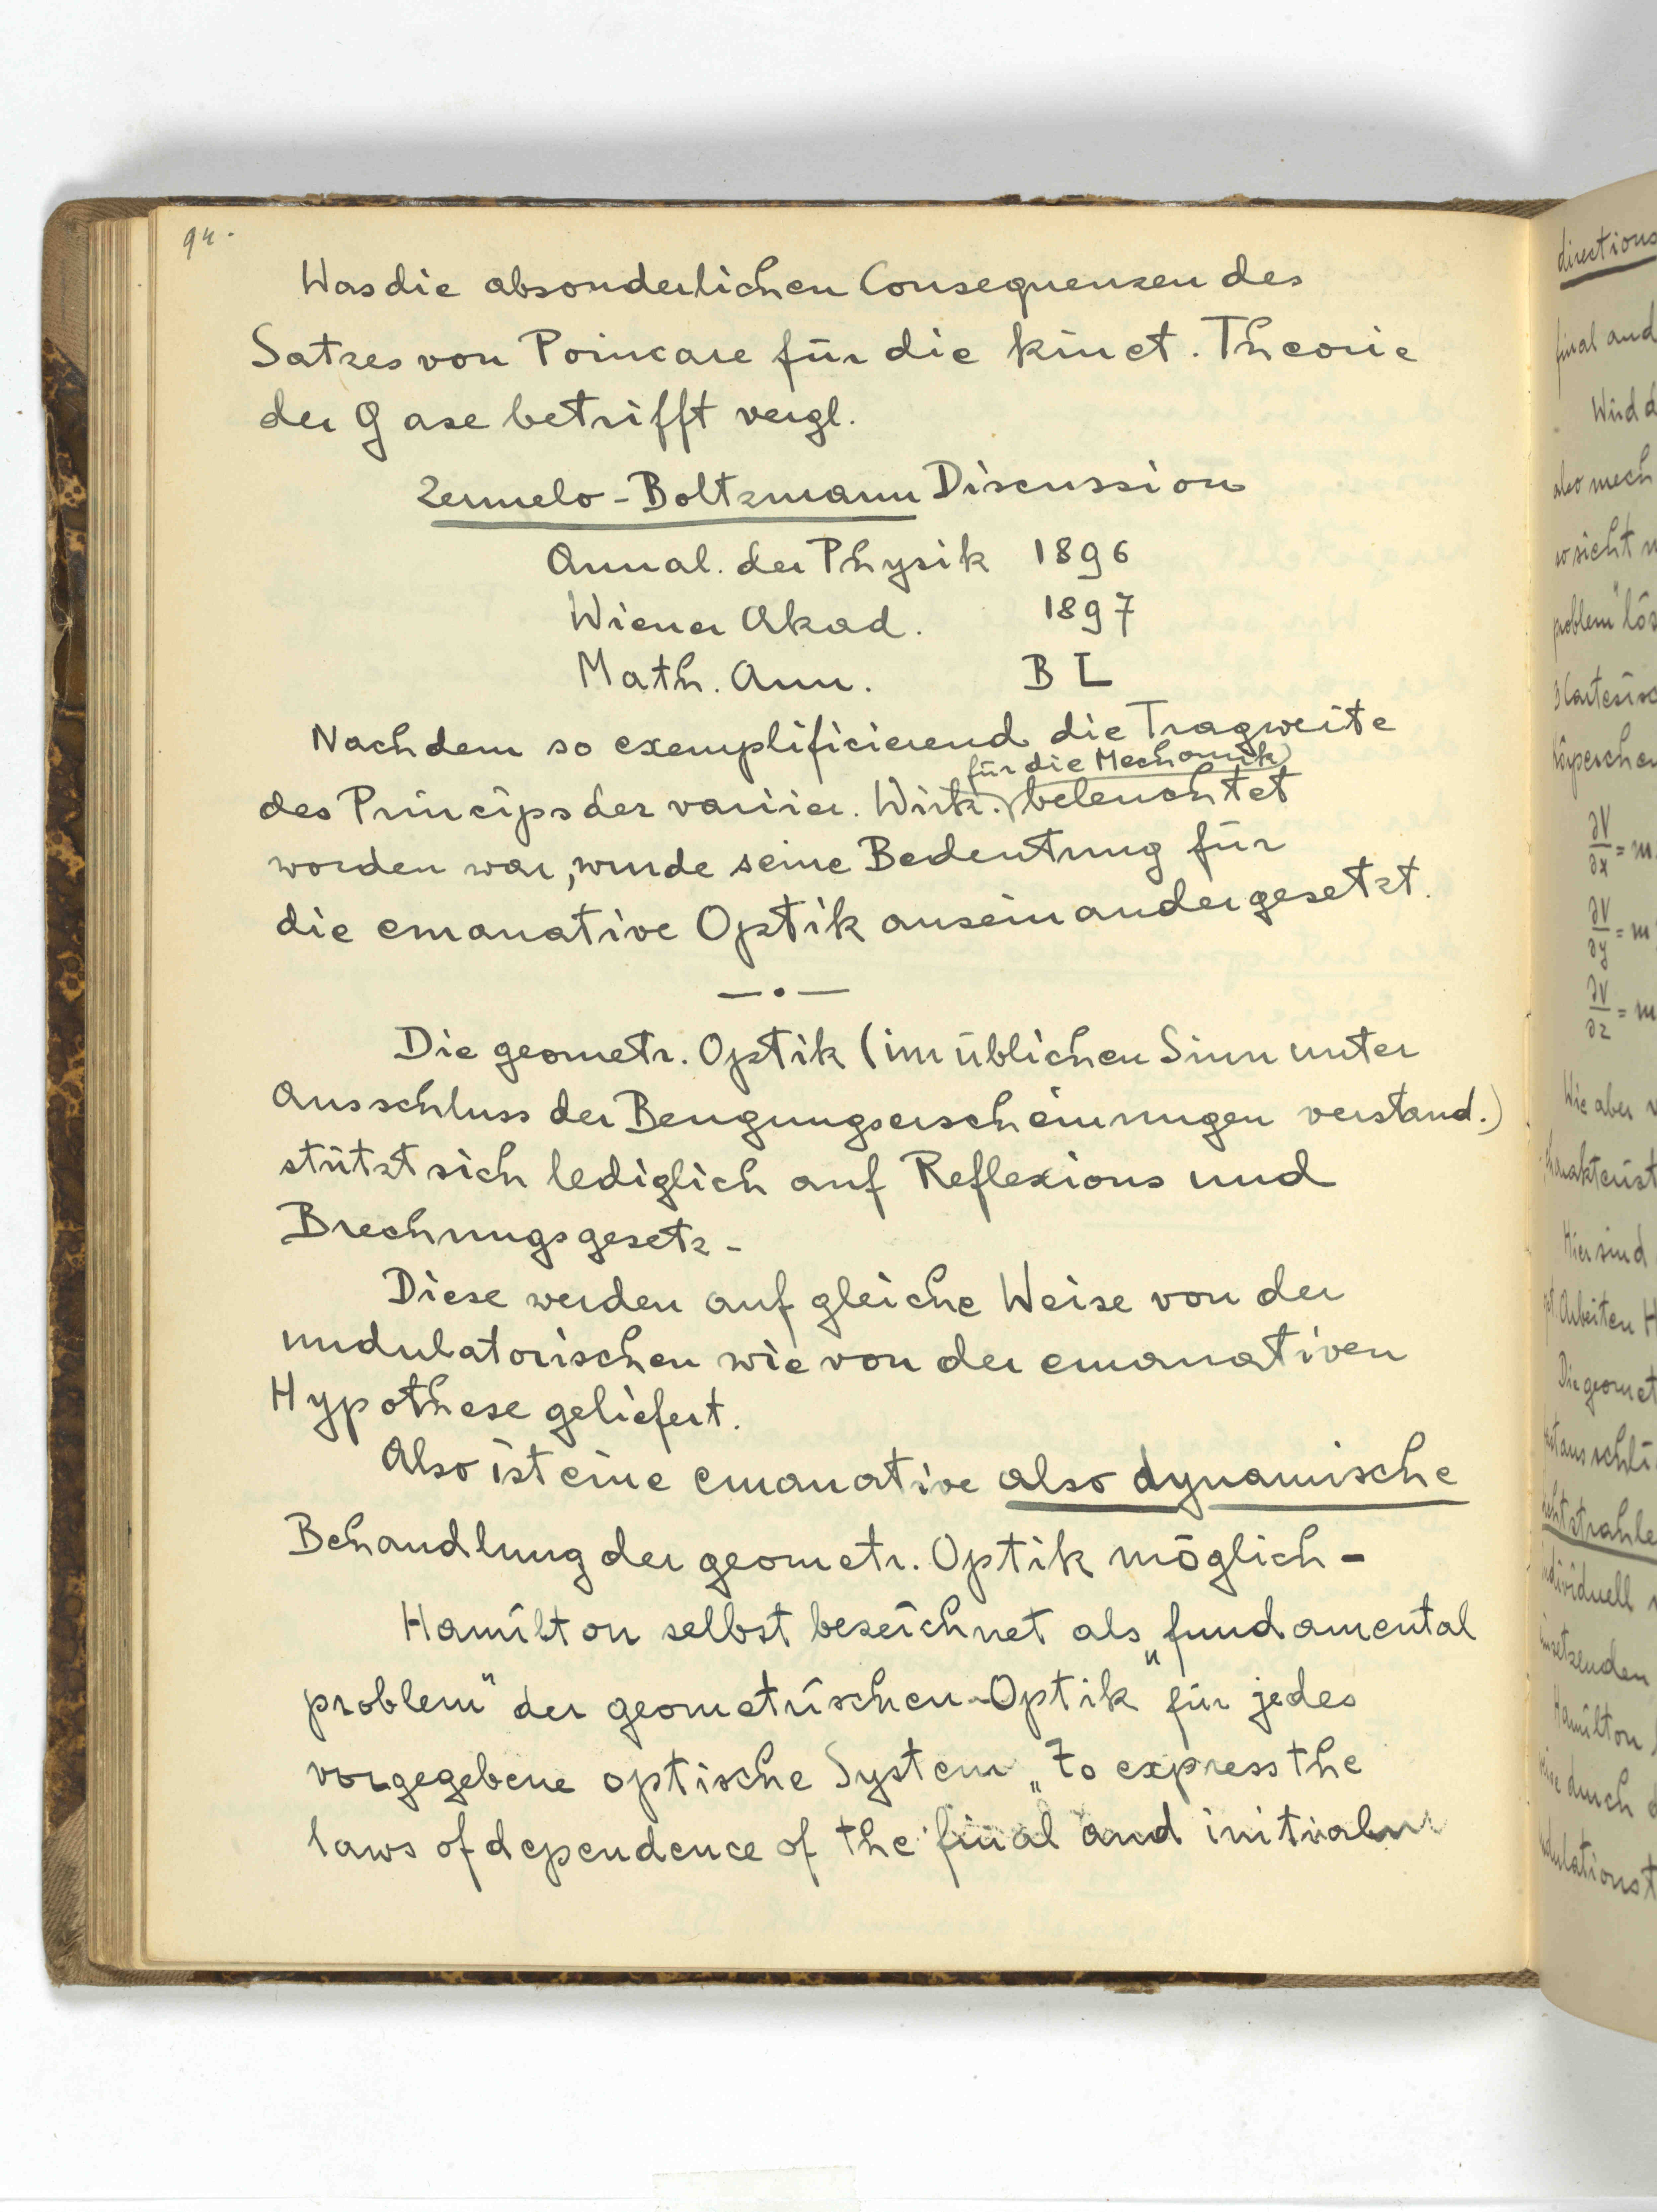 94.
Was die absonderlichen Consequenzen des
Satzes von Poincare für die kinet. Theorie
der Gase betrifft vergl.
Zermelo-Boltzmann Discussion
Annal. der Physik 1896
Wiener Akad. 1897
Math. Ann. B L
Nachdem so exemplificierend die Tragweite
für die Mechanik
des Princips der variier. Wirk. beleuchtet
worden war, wurde seine Bedeutung für
die emanative Optik auseinandergesetzt.
— • —
Die geometr. Optik (im üblichen Sinn unter
Ausschluss der Beugungserscheinungen verstand.)
stützt sich lediglich auf Reflexions und
Brechungsgesetz -
Diese werden auf gleiche Weise von der
undulatorischen wie von der emanativen
Hypothese geliefert.
Also ist eine emanative also dynamische
Behandlung der geometr. Optik möglich -
Hamilton selbst bezeichnet als „fundamental
problem" der geometrischen Optik für jedes
vorgegebene optische System „to express the
laws of dependence of the final and initial
directions
final and
Wird d
also mech
problem" lös
∂V/∂x = m
∂V/∂y = m
∂V/∂z = m
Wie aber
Hier sind
Arbeiten H
Die geomet
Hamilton